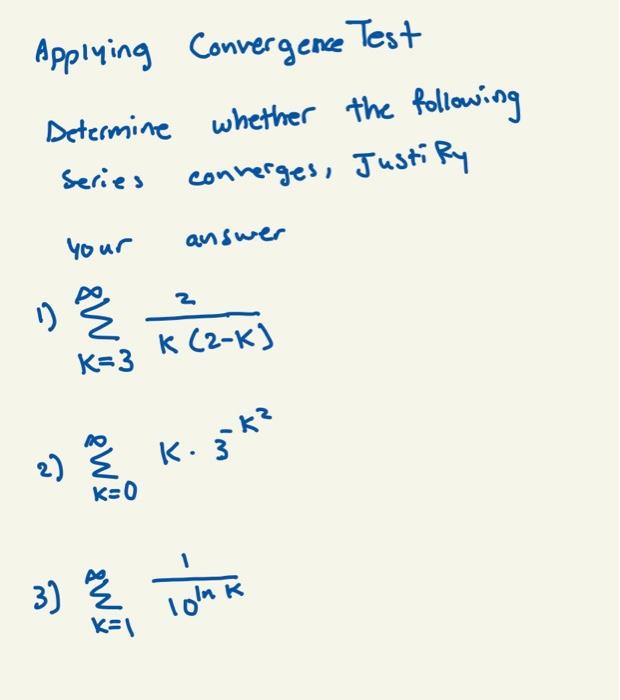 Applying Convergence Test
Determine whether the following
Series converges, Justify
your answer
1) ∞ Σ K=3 2 / K (2-K)
2) ∞ Σ K=0 K · 3^-K²
3) ∞ Σ K=1 1 / 10^ln K